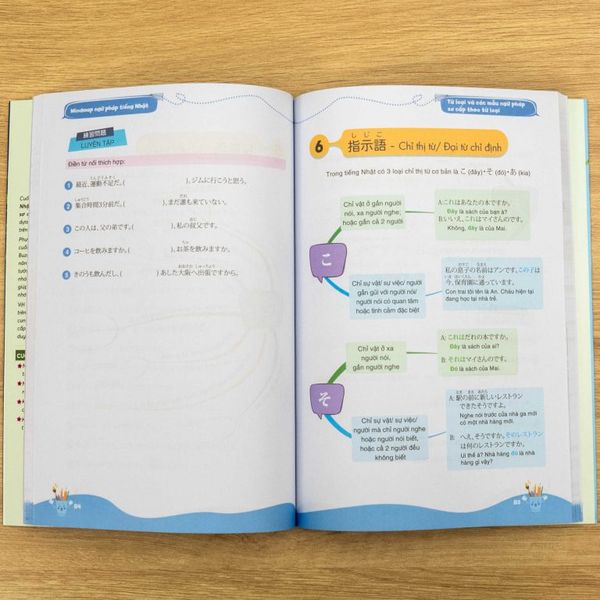 Mindmap ngữ pháp tiếng Nhật
練習問題
LUYỆN TẬP
Điền từ nối thích hợp:
1 最近、運動不足だ。( )、ジムに行こうと思う。
2 集合時間3分前だ。( )、まだ誰も来ていない。
3 この人は、父の弟です。( )、私の叔父です。
4 コーヒを飲みますか。( )、お茶を飲みますか。
5 きのうも飲んだし、( )あした大阪へ出張ですから。
84
Từ loại và các mẫu ngữ pháp
sơ cấp theo từ loại
しじご
6 指示語 - Chỉ thị từ/ Đại từ chỉ định
Trong tiếng Nhật có 3 loại chỉ thị từ cơ bản là こ (đây) - そ (đó) - あ (kia)
こ
Chỉ vật ở gần người
nói, xa người nghe;
hoặc gần cả 2 người
A: これはあなたの本ですか。
Đây là sách của bạn à?
B: いいえ、これはマイさんのです。
Không, đây là của Mai.
Chỉ sự vật/ sự việc/ người
gần gũi với người nói/
người nói có quan tâm
hoặc tình cảm đặc biệt
私の息子の名前はアンです。この子は
今、保育園に通っています。
Con trai tôi tên là An. Cháu hiện tại
đang học tại nhà trẻ.
そ
Chỉ vật ở xa
người nói,
gần người nghe
A: これはだれの本ですか。
Đây là sách của ai?
B: それはマイさんのです。
Đó là sách của Mai.
Chỉ sự vật/ sự việc/
người mà chỉ người nghe
hoặc người nói biết,
hoặc cả 2 người đều
không biết
A: 駅の前に新しいレストラン
できたそうですよ。
Nghe nói trước cửa nhà ga mới
có một nhà hàng mới.
B: へえ、そうですか。そのレストラン
は何のレストランですか。
Ui thế á? Nhà hàng đó là nhà
hàng gì vậy?
85